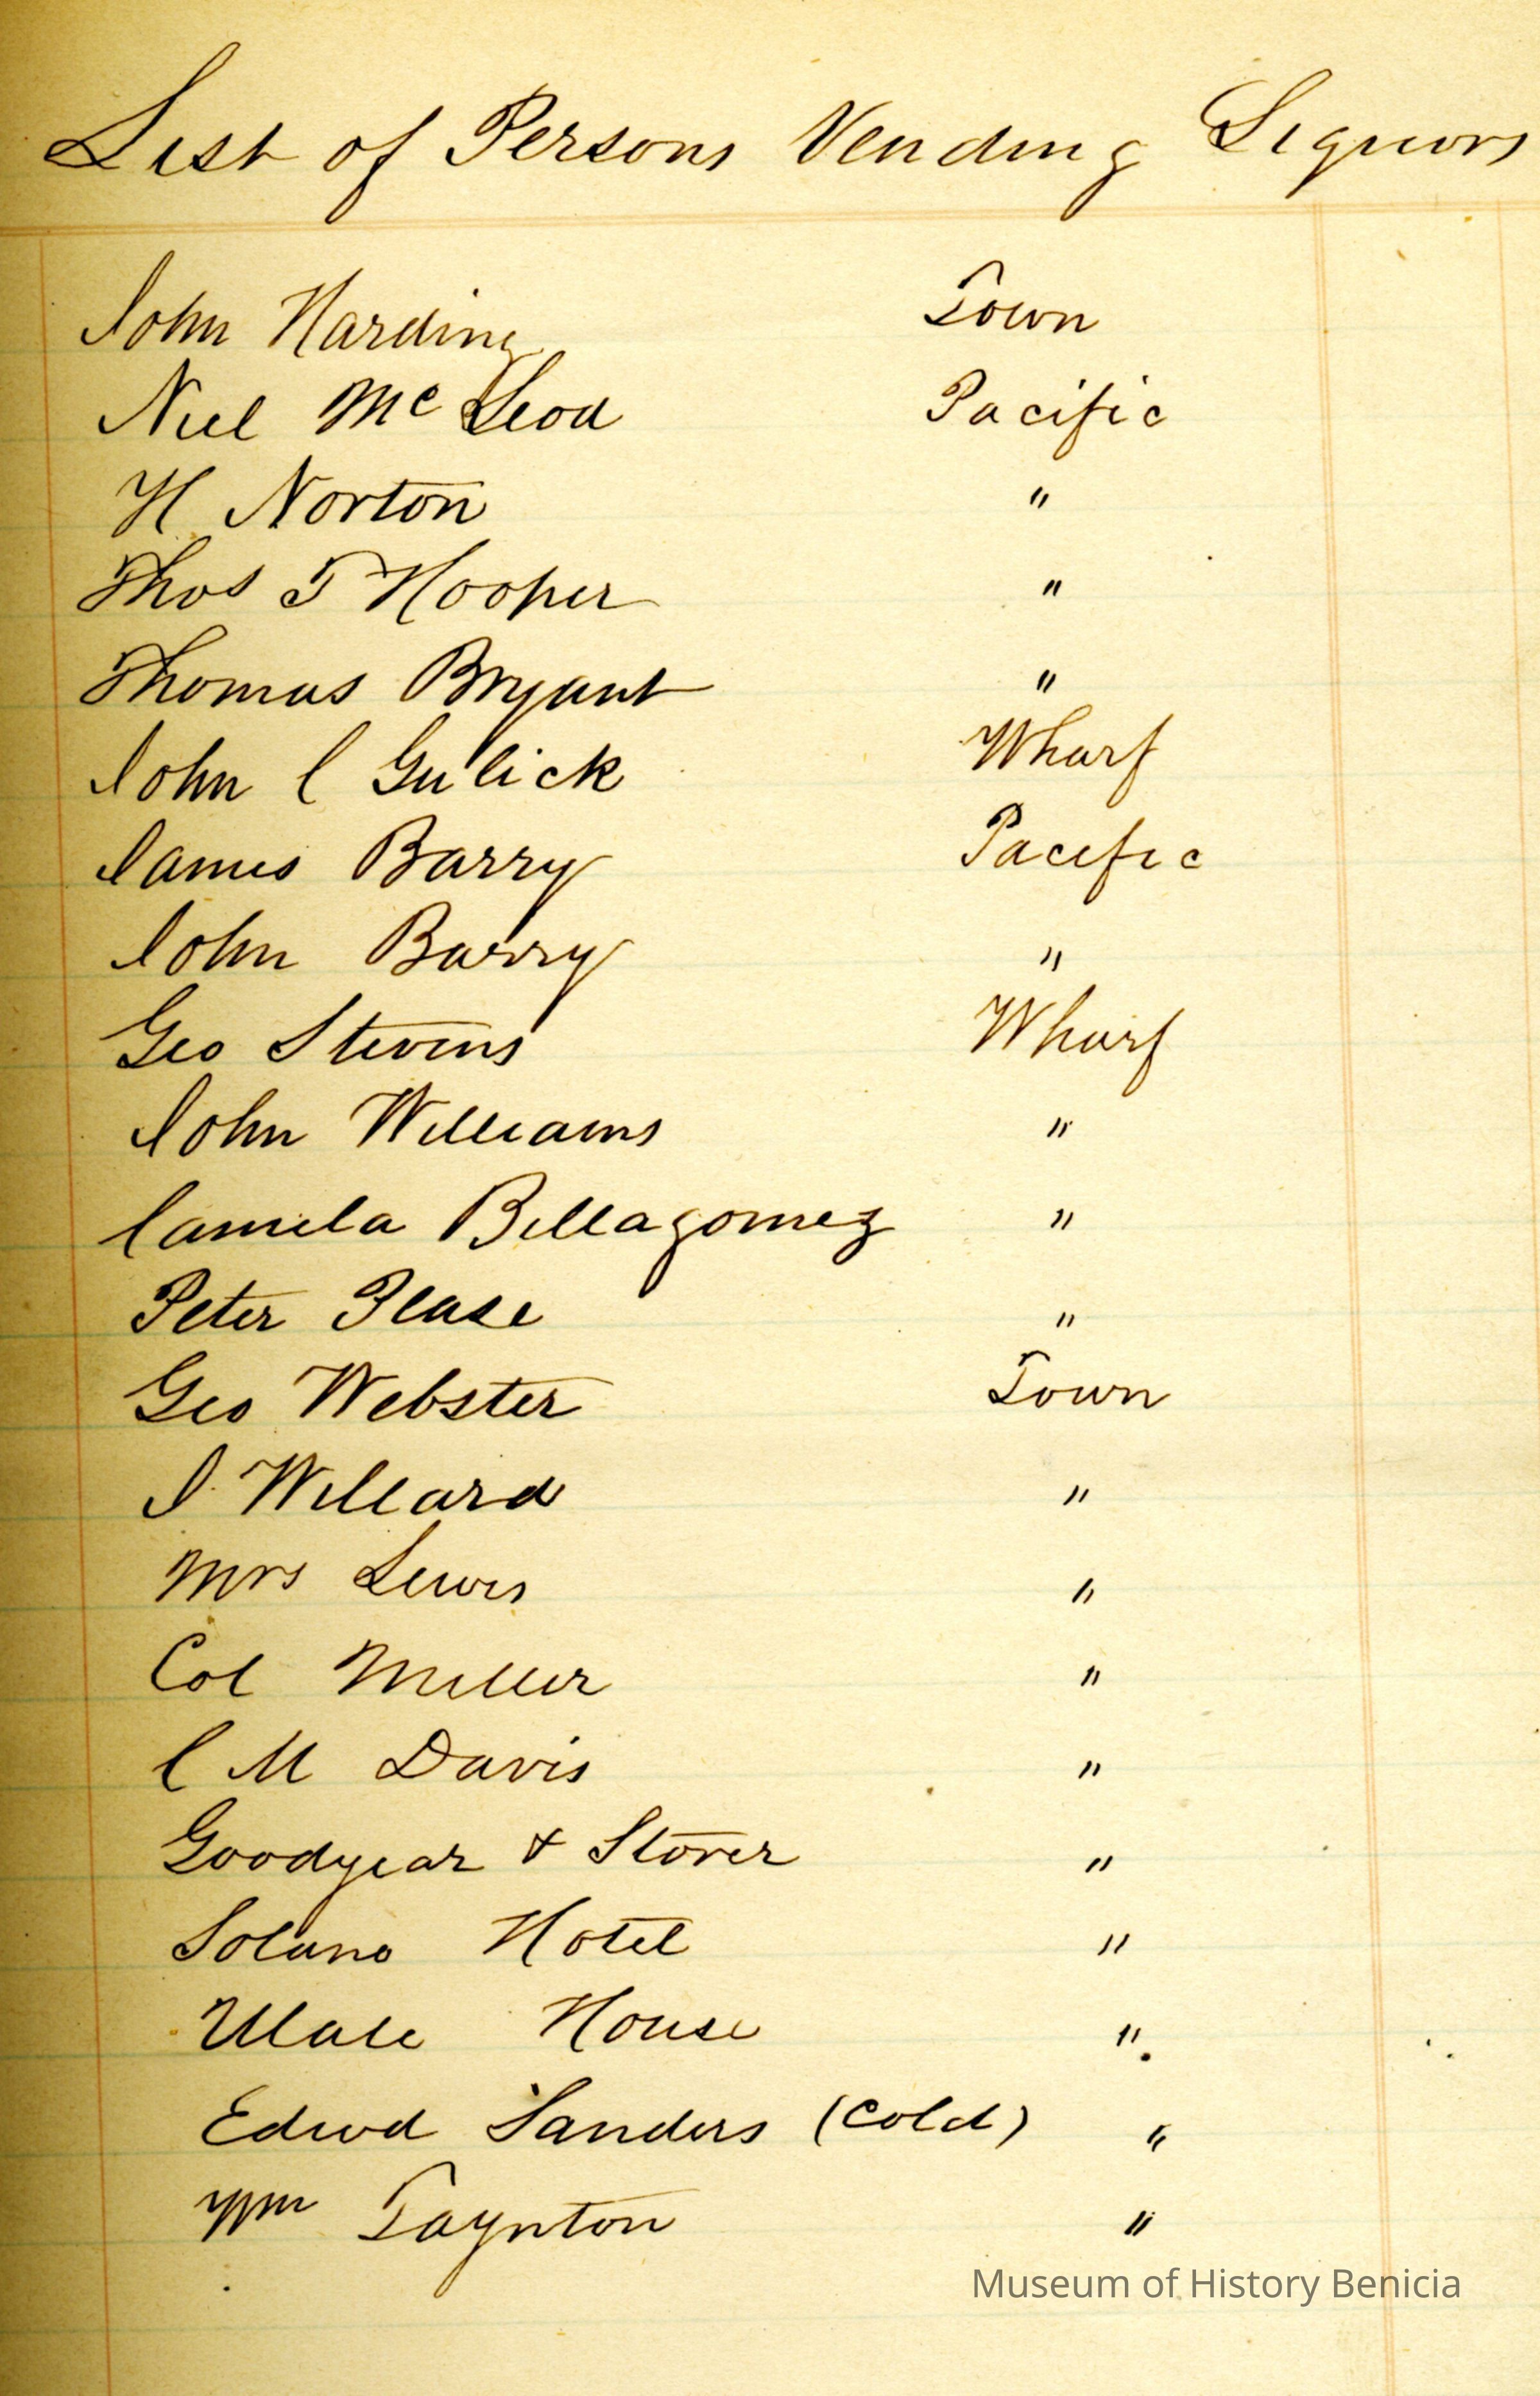 List of Persons Vending Liquors
John Harding Town
Niel McLeod Pacific
H Norton "
Thos T Hooper "
Thomas Bryant "
John C Gulick Wharf
James Barry Pacific
John Barry "
Geo Stevens Wharf
John Williams "
Camila Billagomez "
Peter Please "
Geo Webster Town
J. Willard "
Mrs Lewis "
Col Miller "
C M Davis "
Goodyear & Storer "
Solano Hotel "
House "
Edwd Sanders (Cold) "
Wm Taynton "
Museum of History Benicia